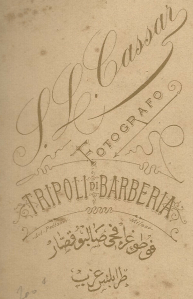 S. L. Cassar
FOTOGRAFO
TRIPOLI DI BARBERIA
فوطوغرافجی صالبو قصار
طرابلس غرب